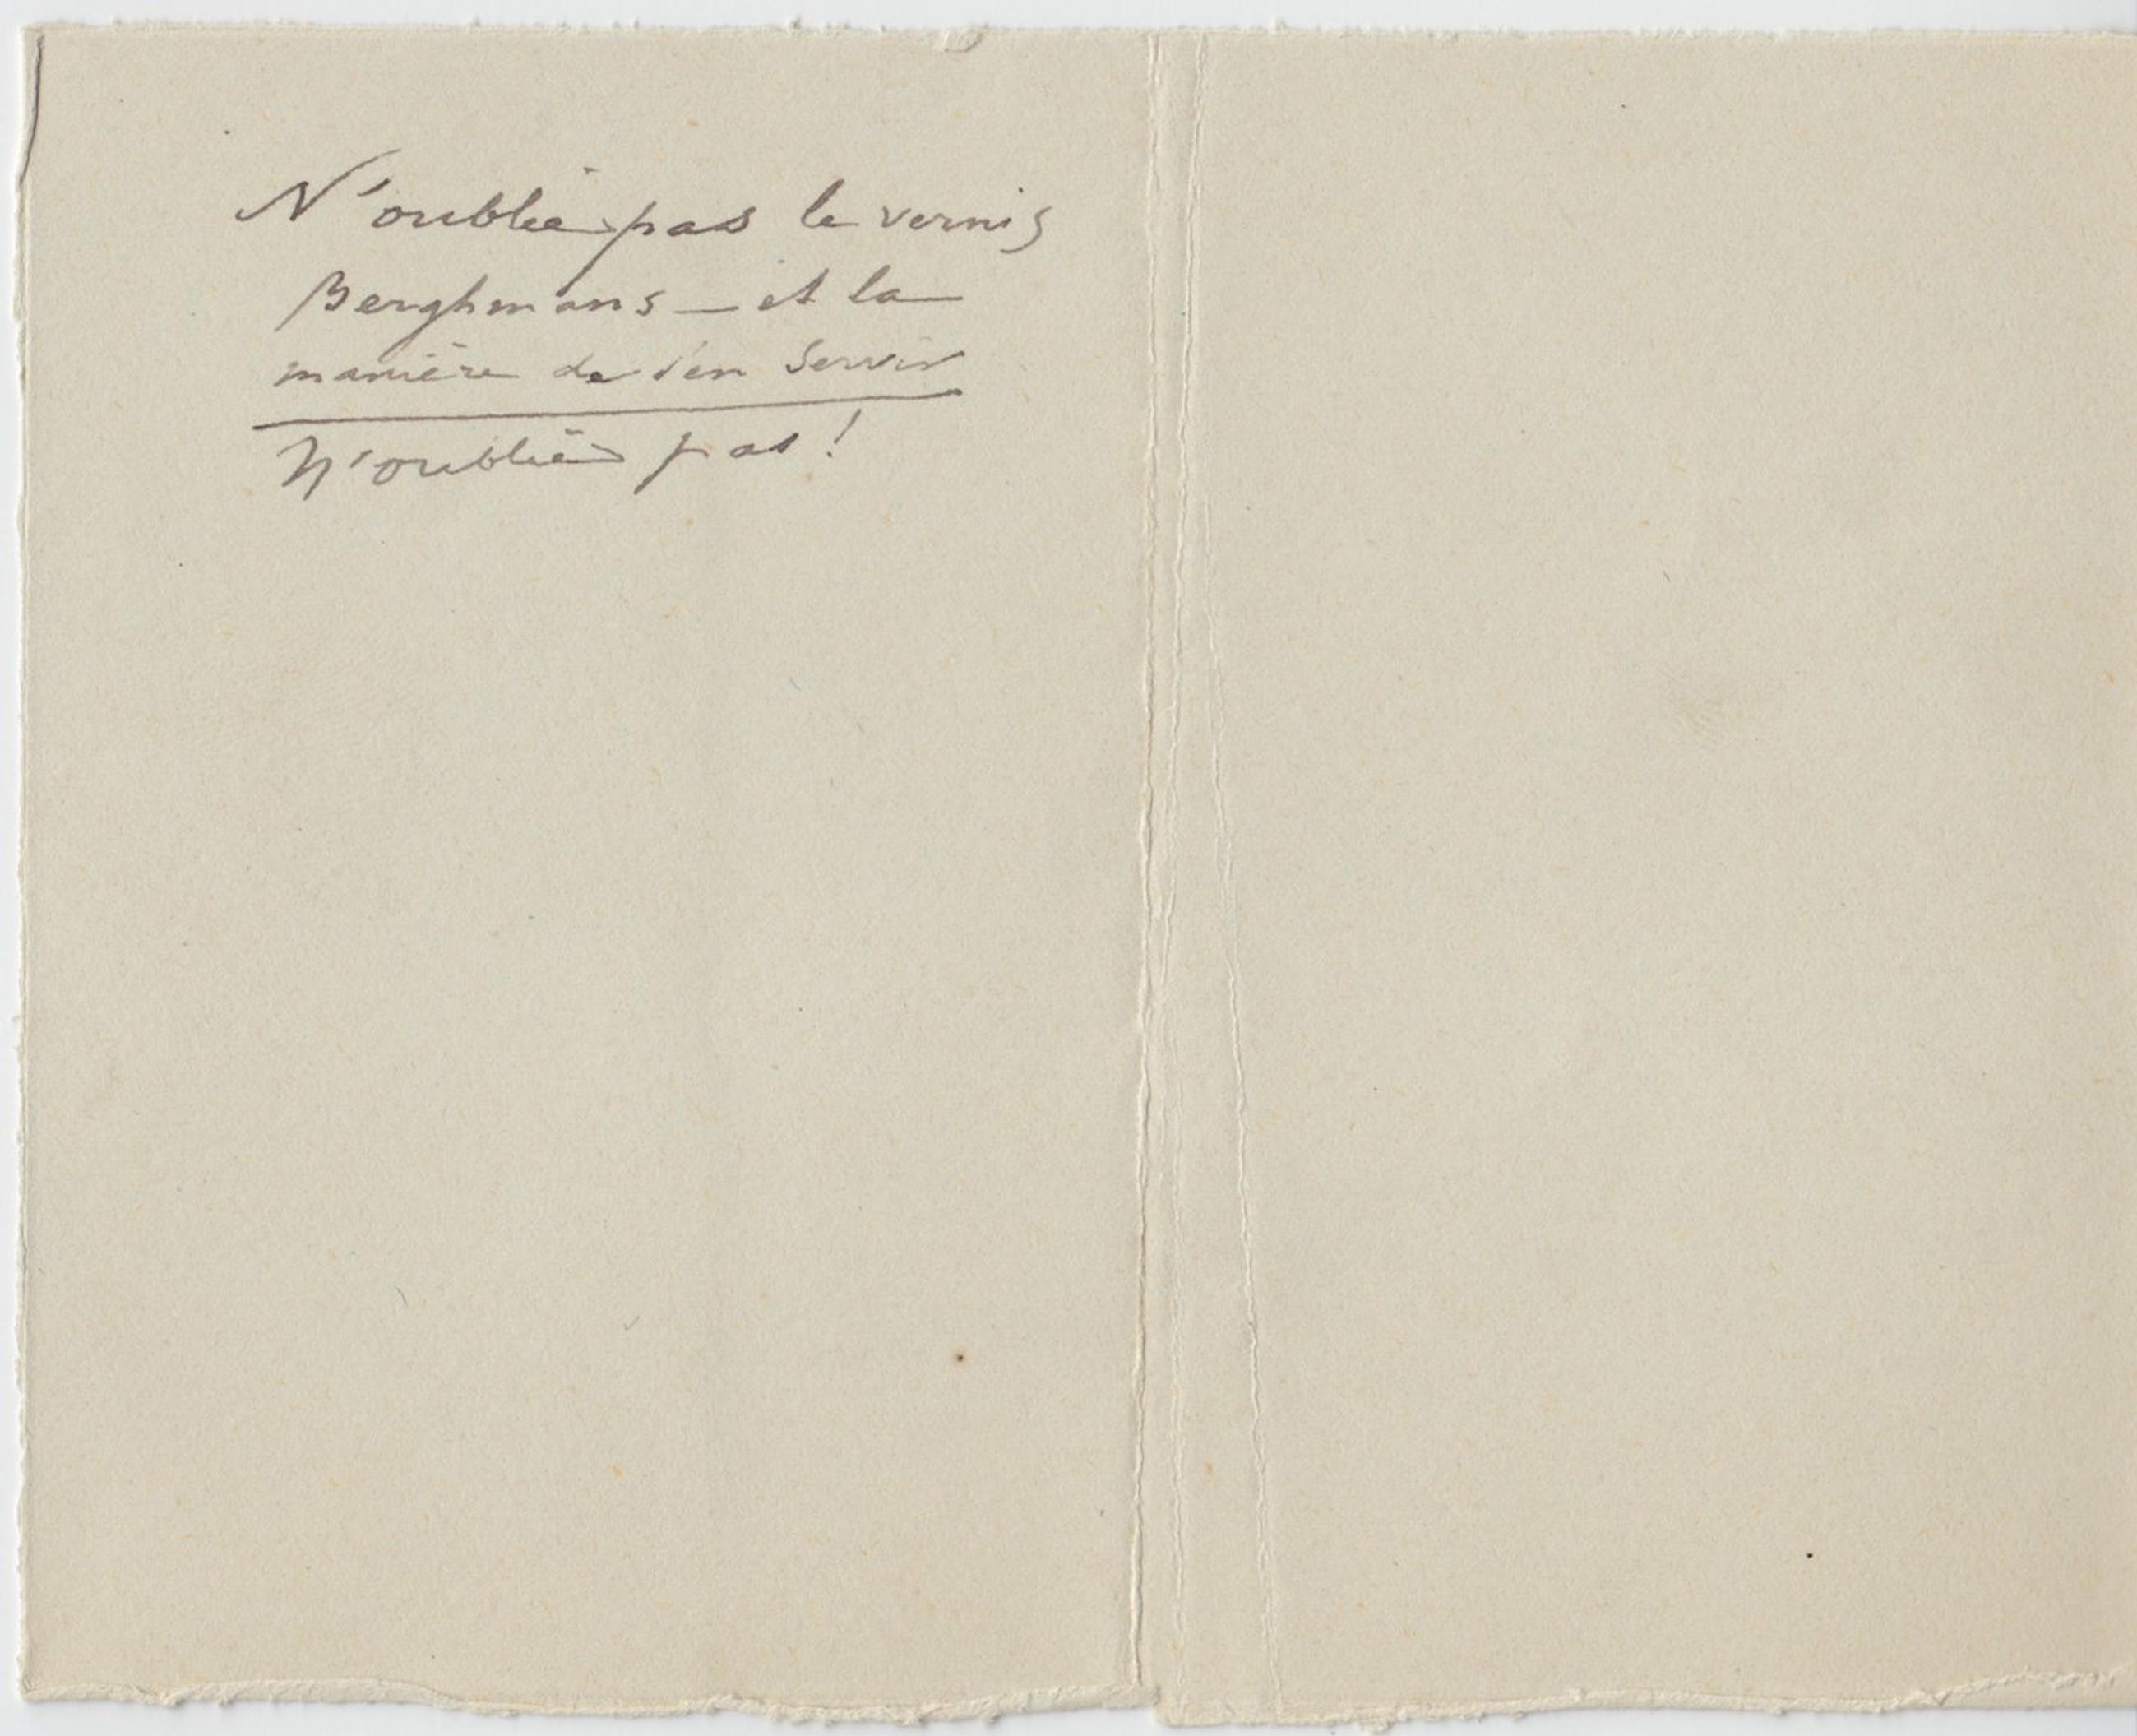 N'oublie pas le vernis
Berghmans — et la
manière de s'en servir
N'oublie pas !